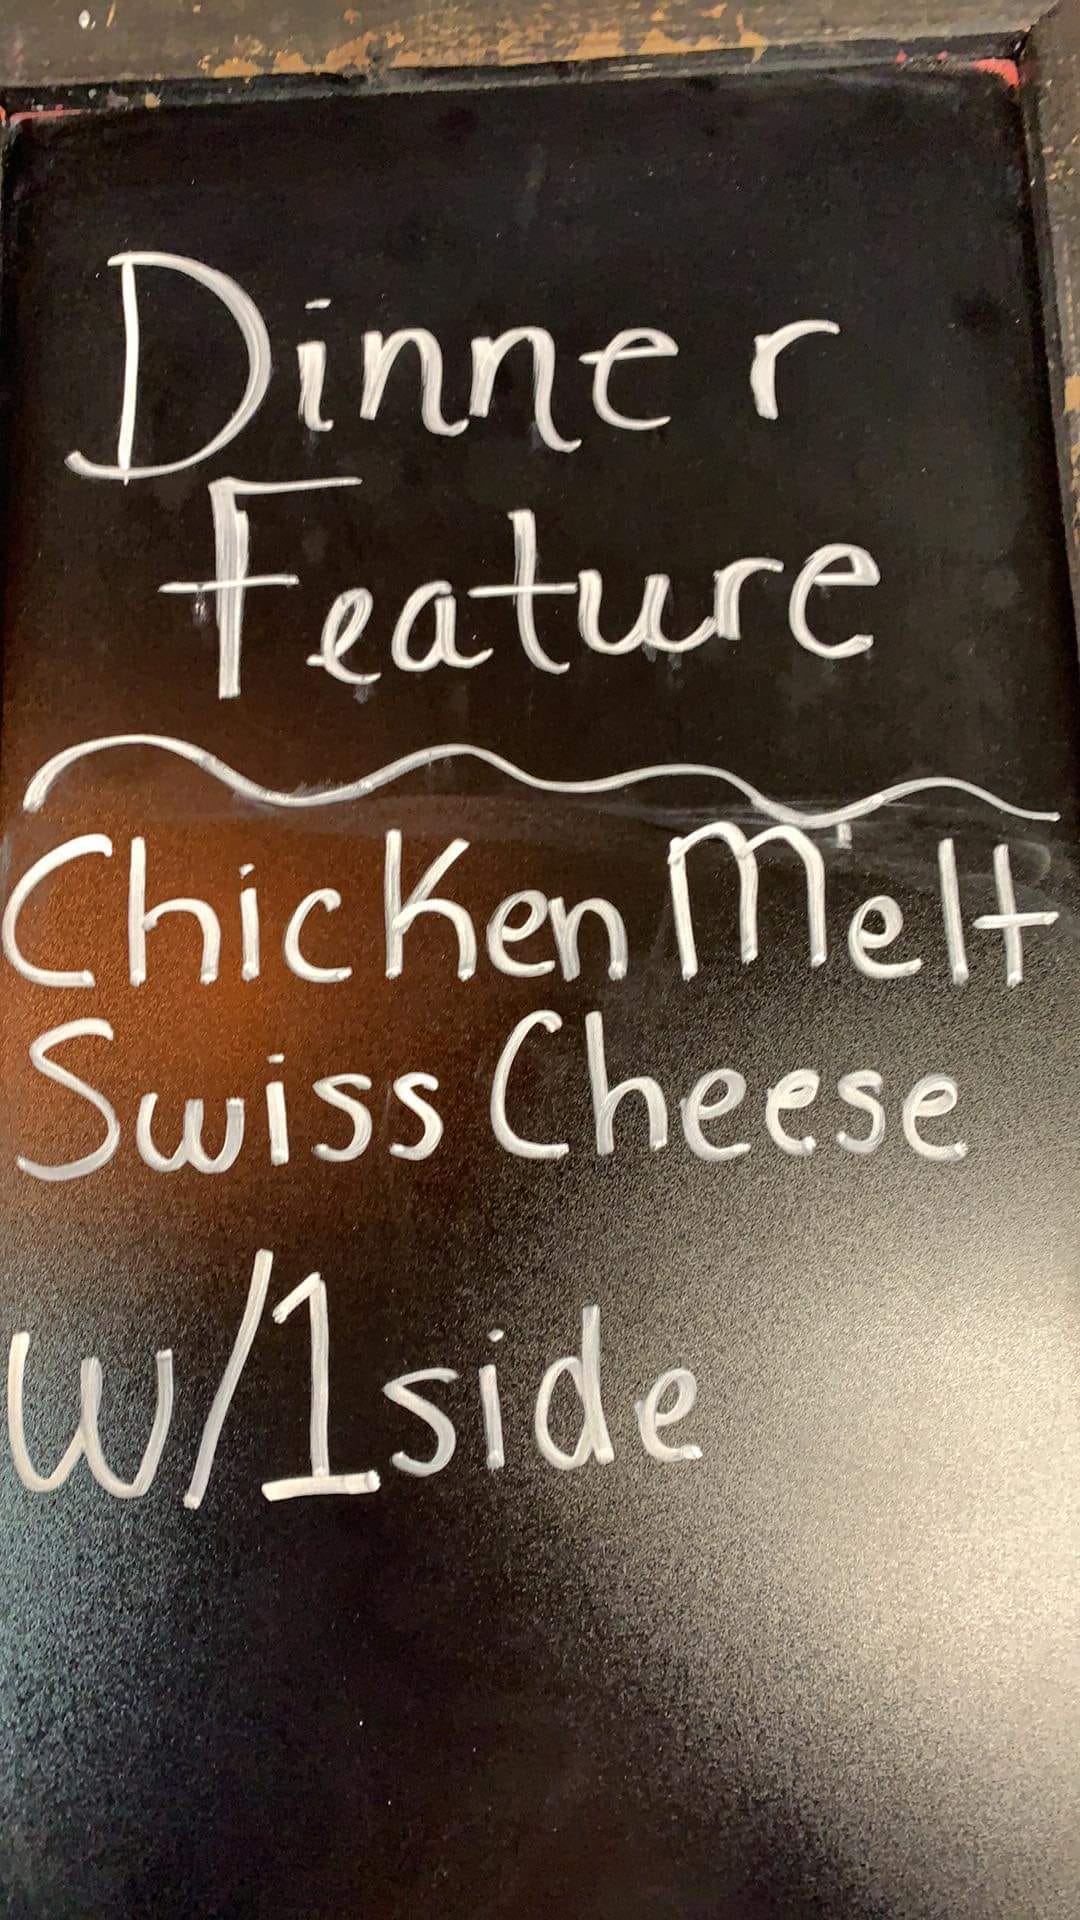 Dinner
Feature
Chicken Melt
Swiss Cheese
w/1 side